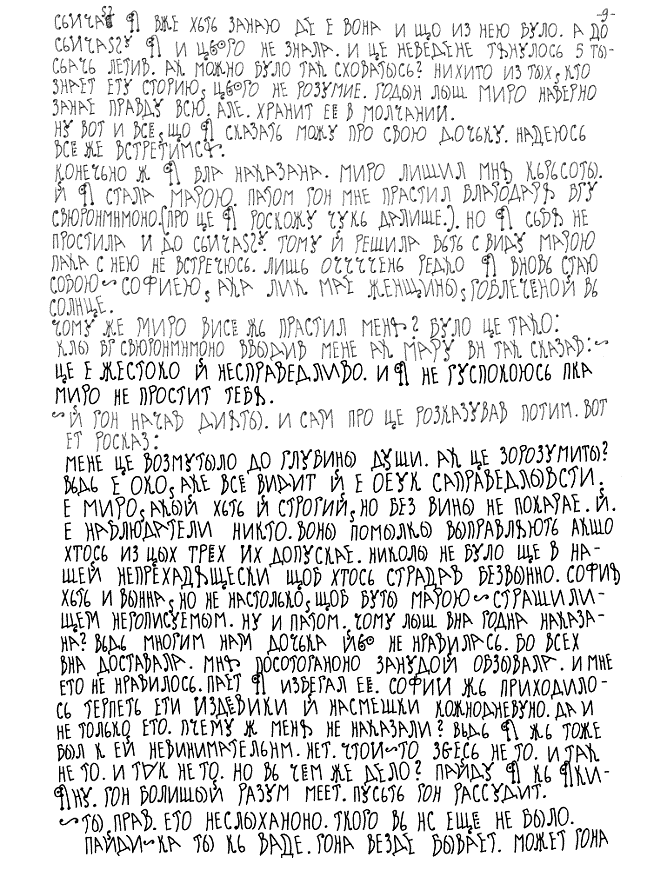 -9-
СЬИЧАС ¶ ВЖЕ ХѢТЬ ЗАНАЮ ДЕ Е ВОНА И ЩО ИЗ НЕЮ БУЛО. А ДО
И НЕ ЗНАЛА. И ЦЕ НЕВЕДЕНЕ ТѢНУЛОСЬ 5 ТЫ-
СЬАЧЬ ЛЕТИВ. АК МОЖНО БУЛО ТАК СХОВАТЫСЬ? НИХИТО ИЗ ТЫХ, КТО
ЗНАЕТ ЕТУ СТОРИЮ, НЕ РОЗУМИЕ. ГОДЫН ЛЫШ МИРО НАВЕРНО
ЗАНАЕ ПРАВДУ ВСЮ. АЛЕ. ХРАНИТ ЕЕ В МОЛЧАНИИ.
НУ ВОТ И ВСЁ, ЩО ¶ СКАЗАТЬ МОЖУ ПРО СВОЮ ДОЧЬКУ. НАДЕЮСЬ
ВСЁ ЖЕ ВСТРЕТИМСѢ.
КОНЕЧЬНО Ж ¶ ВЛА НАКАЗАНА. МИРО ЛИШИЛ МНѢ КЬРЬСОТЫ.
Й ¶ СТАЛА МАРОЮ. ПАТОМ ГОН МНЕ ПРАСТИЛ ВЛАГОДАРѢ ВГУ
СВЮРОНМНМОНО.(ПРО ЦЕ ¶ РОСКОЖУ ЧУКЬ ДАЛИШЕ.). НО ¶ СЬБѢ НЕ
ПРОСТИЛА И ДО ТОМУ Й РЕШИЛА ВЬТЬ С ВИДУ МАРОЮ
ПАКА С НЕЮ НЕ ВСТРЕЧЮСЬ. ЛИШЬ ОЧЧЧЧЕНЬ РЕДКО ¶ ВНОВЬ СТАЮ
СОБОЮ~СОФИЕЮ, АКА ЛИК МАЕ ЖЕНЩИНЫ, ГОВЛЕЧЁНОЙ ВЬ
СОЛНЦЕ.
ЧОМУ ЖЕ МИРО ВИСЁ ЖЬ ПРАСТИЛ МЕНѢ? БУЛО ЦЕ ТАКО:
КЛЫ БГ СВЮРОНМНМОНО ВВЫДИВ МЕНЕ АК МАРУ ВН ТАК СКАЗАВ:~
ЦЕ Е ЖЕСТОКО Й НЕСПРАВЕДЛИВО. И ¶ НЕ ГУСПОКОЮСЬ ПКА
МИРО НЕ ПРОСТИТ ТЕБѢ.
~Й ГОН НАЧАВ ДИѢТЫ. И САМ ПРО ЦЕ РОЗКАЗУВАВ ПОТИМ. ВОТ
ЕТ РОСКАЗ:
МЕНЕ ЦЕ ВОЗМУТЫЛО ДО ГЛУБИНЫ ДУШИ. АК ЦЕ ЗОРОЗУМИТЫ?
ВЬДЬ Е ОКО, АКЕ ВСЁ ВИДИТ Й Е ОЕУК САПРАВЕДЛЫВСТИ.
Е МИРО, АКЫЙ ХЬТЬ Й СТРОГИЙ, НО БЕЗ ВИНЫ НЕ ПОКАРАЕ. Й.
Е НАБЛЮДАТЕЛИ НИКТО. ВОНЫ ПОМЫЛКЫ ВЫПРАВЛѢЮТЬ АКШО
ХТОСЬ ИЗ ЦЫХ ТРЁХ ИХ ДОПУСКАЕ. НИКОЛЫ НЕ БУЛО ЩЕ В НА-
ШЕЙ НЕПРЕХАДѢЩЕСКИ ЩОБ ХТОСЬ СТРАДАВ БЕЗВЫННО. СОФИѢ
ХЬТЬ И ВЫННА, НО НЕ НАСТОЛЬКО, ЩОБ БУТЫ МАРОЮ~СТРАШИЛИ-
ЩЕМ НЕГОПИСУЕМЫМ. НУ И ПАТОМ, ЧОМУ ЛЫШ ВНА ГОДНА НАКАЗА-
НА? ВЬДЬ МНОГИМ НАМ ДОЧЬКА НЕ НРАВИЛАСЬ. БО ВСЕХ
ВНА ДОСТАВАЛА. МНѢ ПОСОТОГАНОНО ЗАНУДОЙ ОБЗЫВАЛА. И МНЕ
ЕТО НЕ НРАВИЛОСЬ. ПАЕТ ¶ ИЗБЕГАЛ ЕЁ. СОФИИ ЖЬ ПРИХОДИЛО-
СЬ ТЕРПЕТЬ ЕТИ ИЗДЕВИКИ Й НАСМЕШКИ КОЖНОДНЕВУНО. ДА И
НЕ ТОЛЬКО ЕТО. ПЧЕМУ Ж МЕНѢ НЕ НАКАЗАЛИ? ВЬДЬ ¶ ЖЬ ТОЖЕ
БЫЛ К ЕЙ НЕВИНИМАТЕЛЬНМ. НЕТ. ЧТОЙ~ТО ЗДЕСЬ НЕ ТО. И ТАК
НЕ ТО. И ТАК НЕ ТО. НО ВЬ ЧЁМ ЖЕ ДЕЛО? ПАЙДУ ¶ КЬ ¶КИ-
¶НУ. ГОН БОЛИШЫЙ РАЗУМ МЕЕТ. ПУСЬТЬ ГОН РАССУДИТ.
~ТЫ, ПРАВ. ЕТО НЕСЛЫХАНОНО. ТКОГО ВЬ НС ЕЩЕ НЕ БЫЛО.
ПАЙДИ~КА ТЫ КЬ ВАДЕ. ГОНА ВЕЗДЕ БЫВАЕТ. МОЖЕТ ГОНА